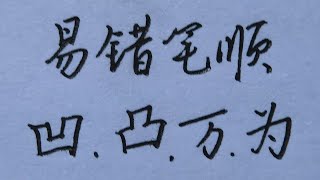 易错笔顺
凹.凸.万.为